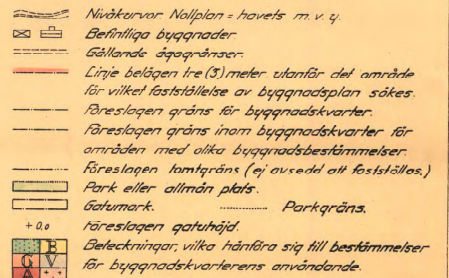 Nivåkurvor Nollplan = havets m. v. y.
Befintliga byggnader
Gällande ägogränser.
Linje belägen tre (3) meter utanför det område
för vilket fastställelse av byggnadsplan sökes.
Föreslagen gräns för byggnadskvarter.
Föreslagen gräns inom byggnadskvarter för
områden med olika byggnadsbestämmelser.
Föreslagen tomtgräns (ej avsedd att fastställas.)
Park eller allmän plats.
Gatumark. Parkgräns.
+0,0 Föreslagen gatuhöjd.
B Beteckningar, vilka hänföra sig till bestämmelser
G V för byggnadskvarterens användande.
A